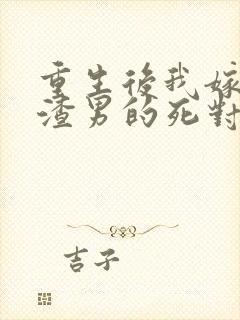 重生後我嫁
渣男的死對
吉子